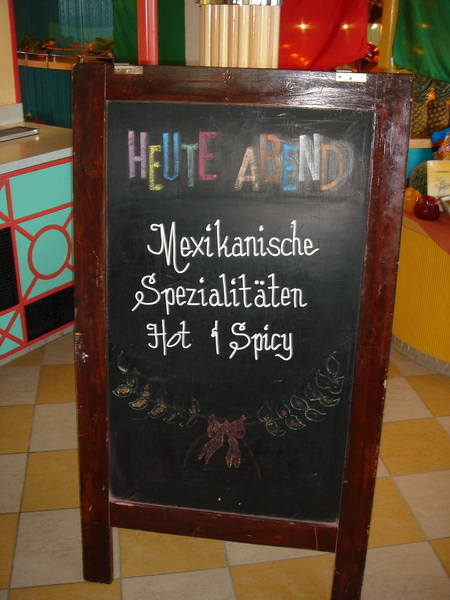 HEUTE ABEND
Mexikanische
Spezialitäten
Hot & Spicy